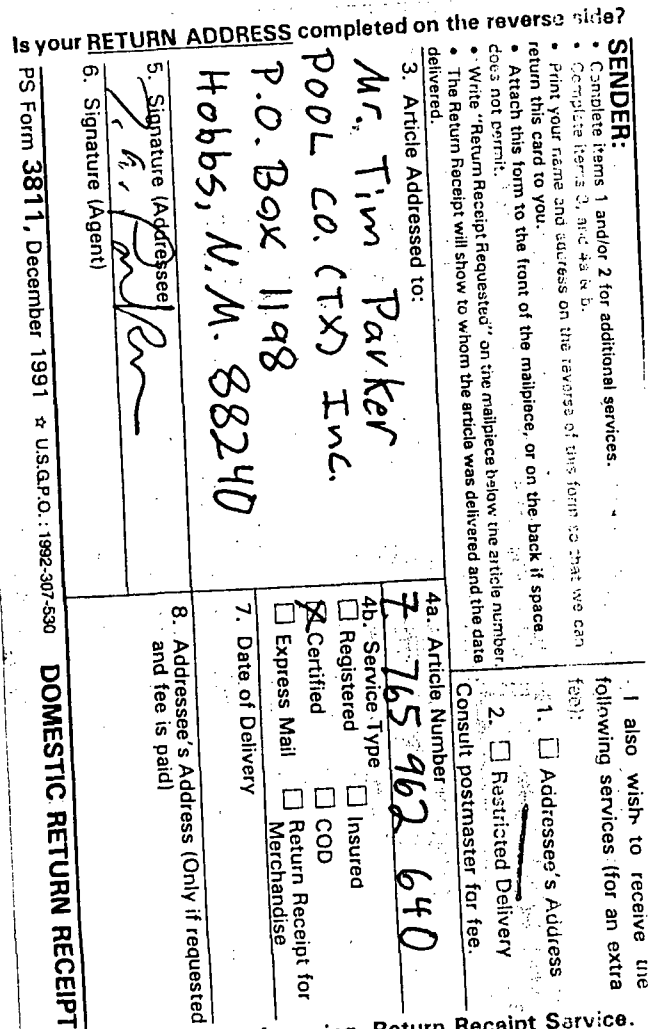 Is your RETURN ADDRESS completed on the reverse side?
SENDER:
• Complete items 1 and/or 2 for additional services.
• Complete items 3, and 4a & b.
• Print your name and address on the reverse of this form so that we can
return this card to you.
• Attach this form to the front of the mailpiece, or on the back if space
does not permit.
• Write "Return Receipt Requested" on the mailpiece below the article number.
• The Return Receipt will show to whom the article was delivered and the date
delivered.
I also wish to receive the
following services (for an extra
fee):
1. ☐ Addressee's Address
2. ☐ Restricted Delivery
Consult postmaster for fee.
3. Article Addressed to:
Mr. Tim Parker
POOL CO. (TX) Inc.
P.O. Box 1198
Hobbs, N.M. 88240
4a. Article Number
Z 765 962 640
4b. Service Type
☐ Registered ☐ Insured
☒ Certified ☐ COD
☐ Express Mail ☐ Return Receipt for
Merchandise
7. Date of Delivery
5. Signature (Addressee)
6. Signature (Agent)
8. Addressee's Address (Only if requested
and fee is paid)
PS Form 3811, December 1991 ☆ U.S.G.P.O.: 1992-307-530 DOMESTIC RETURN RECEIPT
Return Receipt Service.